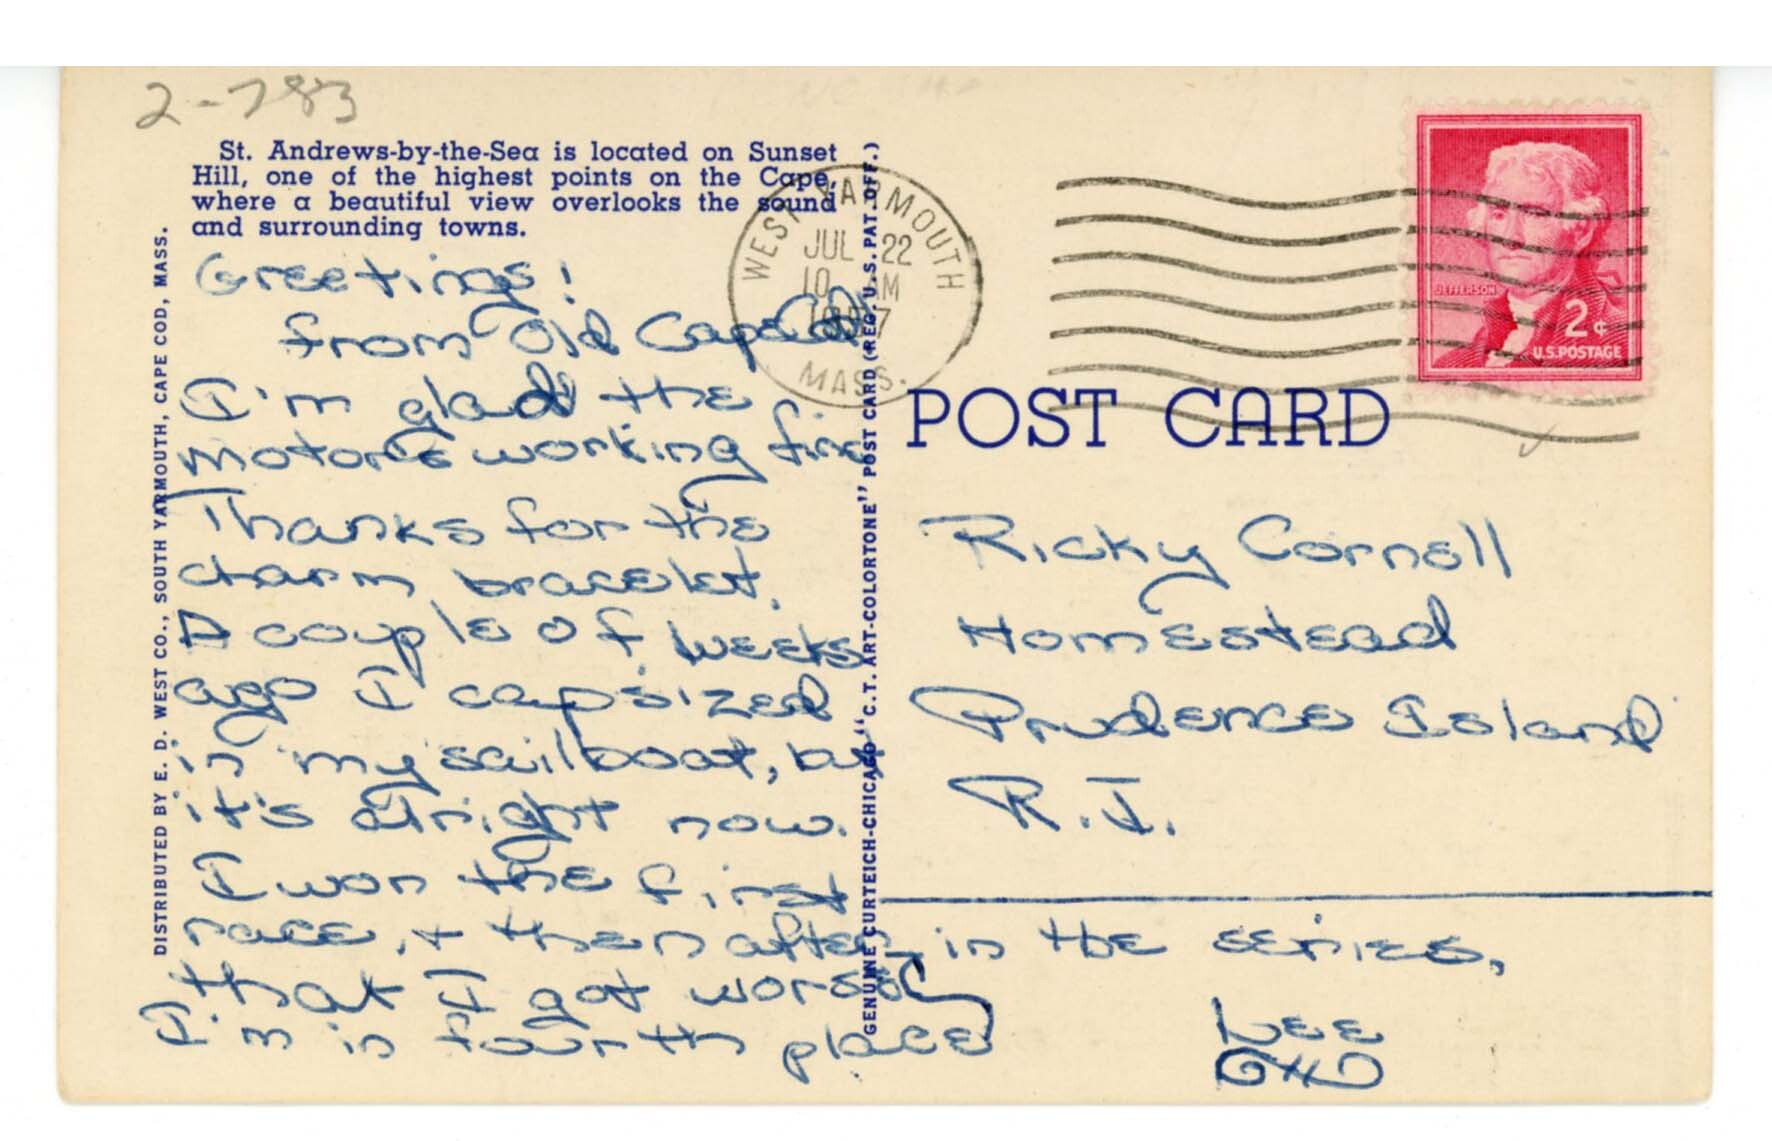 2-783
St. Andrews-by-the-Sea is located on Sunset
Hill, one of the highest points on the Cape,
where a beautiful view overlooks the sound
and surrounding towns.
Greetings!
from Old Cape Cod
I'm glad the
motor's working fine
Thanks for the
charm bracelet.
A couple of weeks
ago I capsized
in my sailboat, but
it's alright now.
I won the first
race, + then after
that I got worse
I'm in fourth place
in the series,
Lee
DISTRIBUTED BY E. D. WEST CO., SOUTH YARMOUTH, CAPE COD, MASS.
GENUINE CURTEICH-CHICAGO "C.T. ART-COLORTONE" POST CARD (REG. U.S. PAT. OFF.)
WEST YARMOUTH
JUL 22
10 M
MASS.
JEFFERSON
2¢
U.S. POSTAGE
POST CARD
Ricky Cornell
Homestead
Prudence Island
R.I.